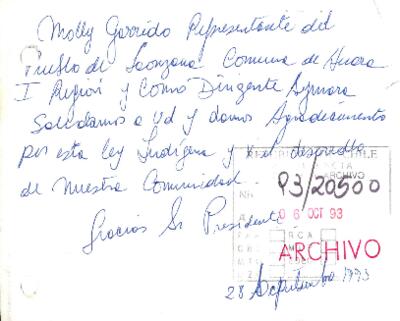 Molly Garrido Representante del
Pueblo de Soonzana Comuna de Huara
I Región y Como Dirigente Aymara
Saludamos a Ud y damos Agradecimiento
por esta ley Indígena y x el desarrollo
de Nuestra Comunidad.
ARCHIVO
NR. 93/20500
A 06 OCT 93
R.C.A.
Gracias Sr Presidente
ARCHIVO
28 Septiembre 1993